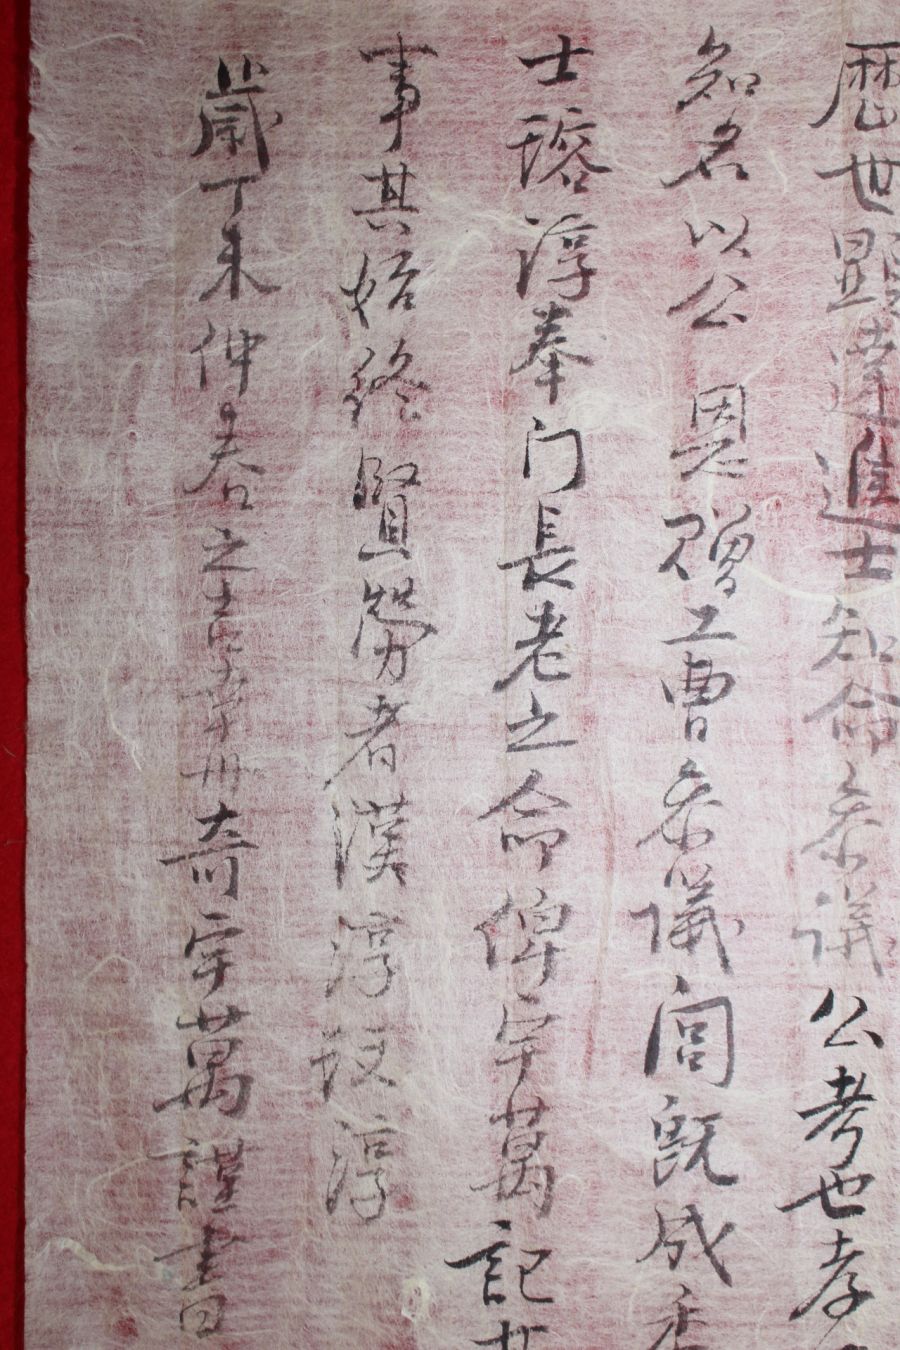 歷世顯達進士知命參議公考也孝
知名以公恩贈工曹參議閭既成秀
士瑢淳奉门長老之命俾宇萬記其
事其始終賢勞者漢淳玟淳
歲丁未仲春之吉幸州奇宇萬謹書